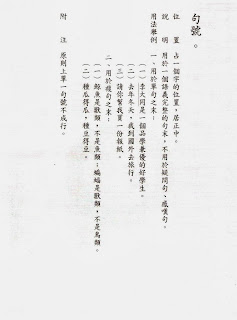 句號 。
位　置　占一個字的位置，居正中。
說　明　用於一個語義完整的句末，不用於疑問句、感嘆句。
用法舉例　一、用於單句之末：
（一）李大同是一個品學兼優的好學生。
（二）去年冬天，我到國外去旅行。
（三）請你幫我買一份報紙。
二、用於複句之末：
（一）鯨魚是獸類，不是魚類；蝙蝠是獸類，不是鳥類。
（二）種瓜得瓜，種豆得豆。
附　注　原則上單一句號不成行。